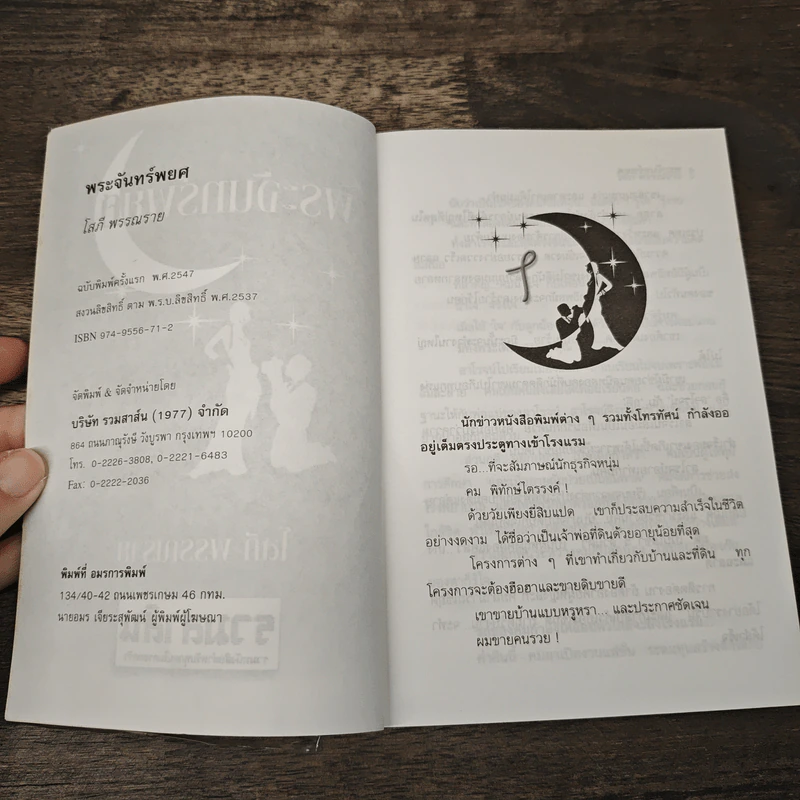 พระจันทร์พยศ
โสภี พรรณราย
ฉบับพิมพ์ครั้งแรก พ.ศ.2547
สงวนลิขสิทธิ์ ตาม พ.ร.บ.ลิขสิทธิ์ พ.ศ.2537
ISBN 974-9556-71-2
จัดพิมพ์ & จัดจำหน่ายโดย
บริษัท รวมสาส์น (1977) จำกัด
864 ถนนภาณุรังษี วังบูรพา กรุงเทพฯ 10200
โทร. 0-2226-3808, 0-2221-6483
Fax: 0-2222-2036
พิมพ์ที่ อมรการพิมพ์
134/40-42 ถนนเพชรเกษม 46 กทม.
นายอมร เจียระสุพัฒน์ ผู้พิมพ์ผู้โฆษณา
๑
นักข่าวหนังสือพิมพ์ต่าง ๆ รวมทั้งโทรทัศน์ กำลังออ
อยู่เต็มตรงประตูทางเข้าโรงแรม
รอ...ที่จะสัมภาษณ์นักธุรกิจหนุ่ม
คม พิทักษ์ไตรรงค์ !
ด้วยวัยเพียงยี่สิบแปด เขาก็ประสบความสำเร็จในชีวิต
อย่างงดงาม ได้ชื่อว่าเป็นเจ้าพ่อที่ดินด้วยอายุน้อยที่สุด
โครงการต่าง ๆ ที่เขาทำเกี่ยวกับบ้านและที่ดิน ทุก
โครงการจะต้องฮือฮาและขายดิบขายดี
เขาขายบ้านแบบหรูหรา... และประกาศชัดเจน
ผมขายคนรวย !